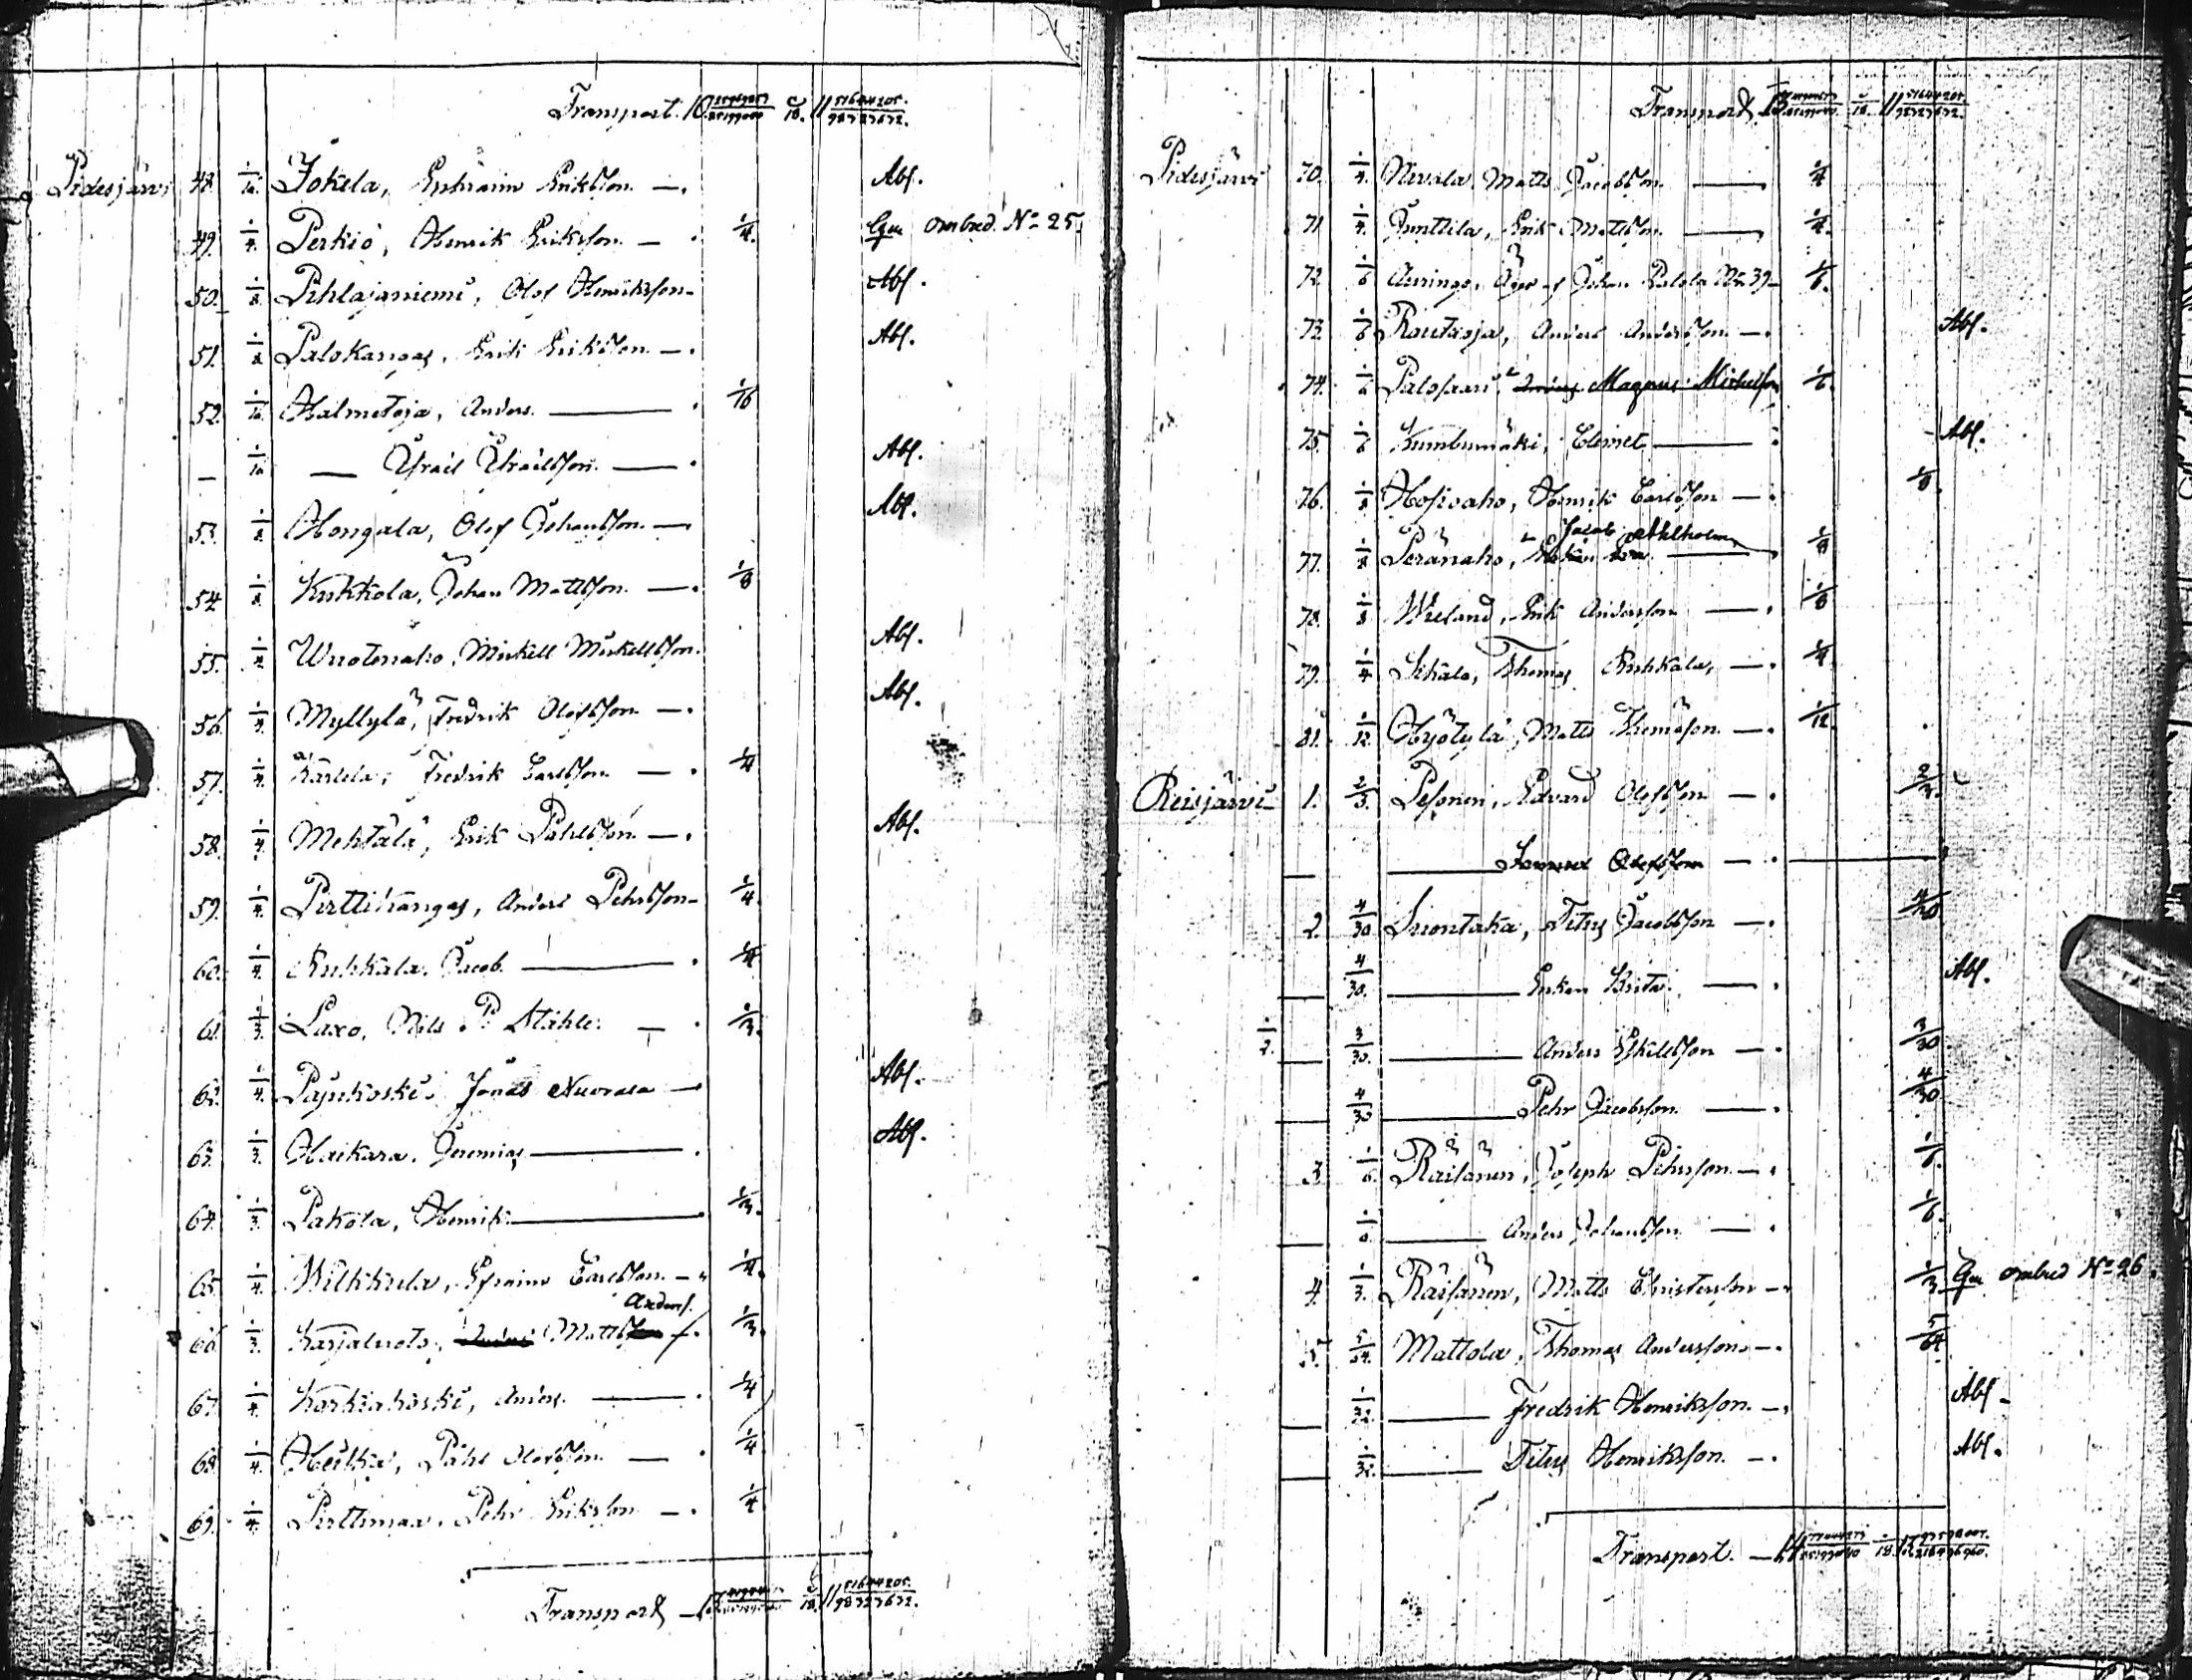 Transport. 10 11 51644205. 98727672.
Pidesjärvi 48. 1/16. Jokela, Ephraim Eriksson —. Abs.
49. 1/4. Perkiö, Henrik Eriksson — . 1/4. Gen ombud. No 25.
50. 1/8. Pihlajaniemi, Olof Henriksson — Abs.
51. 1/8 Palokangas, Erik Eriksson —. Abs.
52. 1/16. Halmetoja, Anders. — . 1/16
— 1/16 — Israel Israelsson. — . Abs.
53. 1/8 Hongala, Olof Johansson. — Abs.
54. 1/8. Kukkola, Johan Mattsson. — . 1/8
55. 1/4. Wuotenaho, Mickell Mickellsson. Abs.
56. 1/4. Myllylä, Fredrik Olofsson —. Abs.
57. 1/4. Karlela, Fredrik Carlsson — . 1/4
58. 1/4. Mehtälä, Erik Påhlsson. —. Abs.
59. 1/4. Pirttikangas, Anders Pehrsson — 1/4.
60. 1/4. Ruhkala. Jacob. — . 1/4
61. 1/3. Laxo, Nils P. Ståhle. — . 1/3.
62. 1/4. Pajukoski. Jonas Nuorala — Abs.
63. 1/3. Haikara. Jeremias — . Abs.
64. 1/3. Pakola, Henrik — . 1/3.
65. 1/4. Wilkkula, Efraim Carlsson. — . 1/4.
Anders.
66. 1/3. Karjaluoto, Matts . 1/3.
67. 1/4. Korkiakoski, Anders. — . 1/4
68. 1/4. Heikki, Påhl Olofsson — . 1/4
69. 1/4. Pirttimaa. Pehr Eriksson — . 1/4
Transport — 11 51644205. 98727672.
Transport 13 11 51644205. 98727672.
Pidesjärvi 70. 1/4. Nivala. Matts Jacobsson — 1/4
71 1/4. Junttila, Erik Mattsson. — 1/4.
72. 1/6 Auringo, Äges af Johan Palola No 39 — 1/6.
73. 1/6 Rautaoja, Anders Andersson —. Abs.
74. 1/6 Palosaari, Magnus Mickelson 1/6.
75. 1/6 Kumbumäki, Clemet — Abs.
76. 1/8 Hosioaho, Henrik Carlsson — . 1/8.
Jacob Ahlholm
77. 1/8 Peränaho, — 1/8
78. 1/8 Wieland, Erik Andersson — . 1/8
79. 1/4 Sikala, Thomas Ruhkala, — . 1/4
81. 1/12 Hyötylä, Matts Thomasson. — . 1/12.
Reisjärvi 1. 2/3. Pesonen, Edvard Olofsson — . 2/3.
— — Samuel Olofsson — .
2. 4/30 Suontaka, Titus Jacobsson — . 4/30
— 4/30. — Enkan Brita. — . Abs.
1/2. — 3/30. — Anders Eskilsson — . 3/30.
— 4/30 — Pehr Jacobsson. — . 4/30
3. 1/6. Räisänen, Joseph Pehrsson. — . 1/6.
— 1/6. — Anders Johansson — . 1/6.
4. 1/3. Räisänen, Matts Christersson — . 1/3. Gen ombud No 26.
5. 5/64. Mattola, Thomas Andersson. — . 5/64.
— 1/32. — Fredrik Henriksson. — . Abs.
— 1/32. — Titus Henriksson. — . Abs.
Transport. — 14